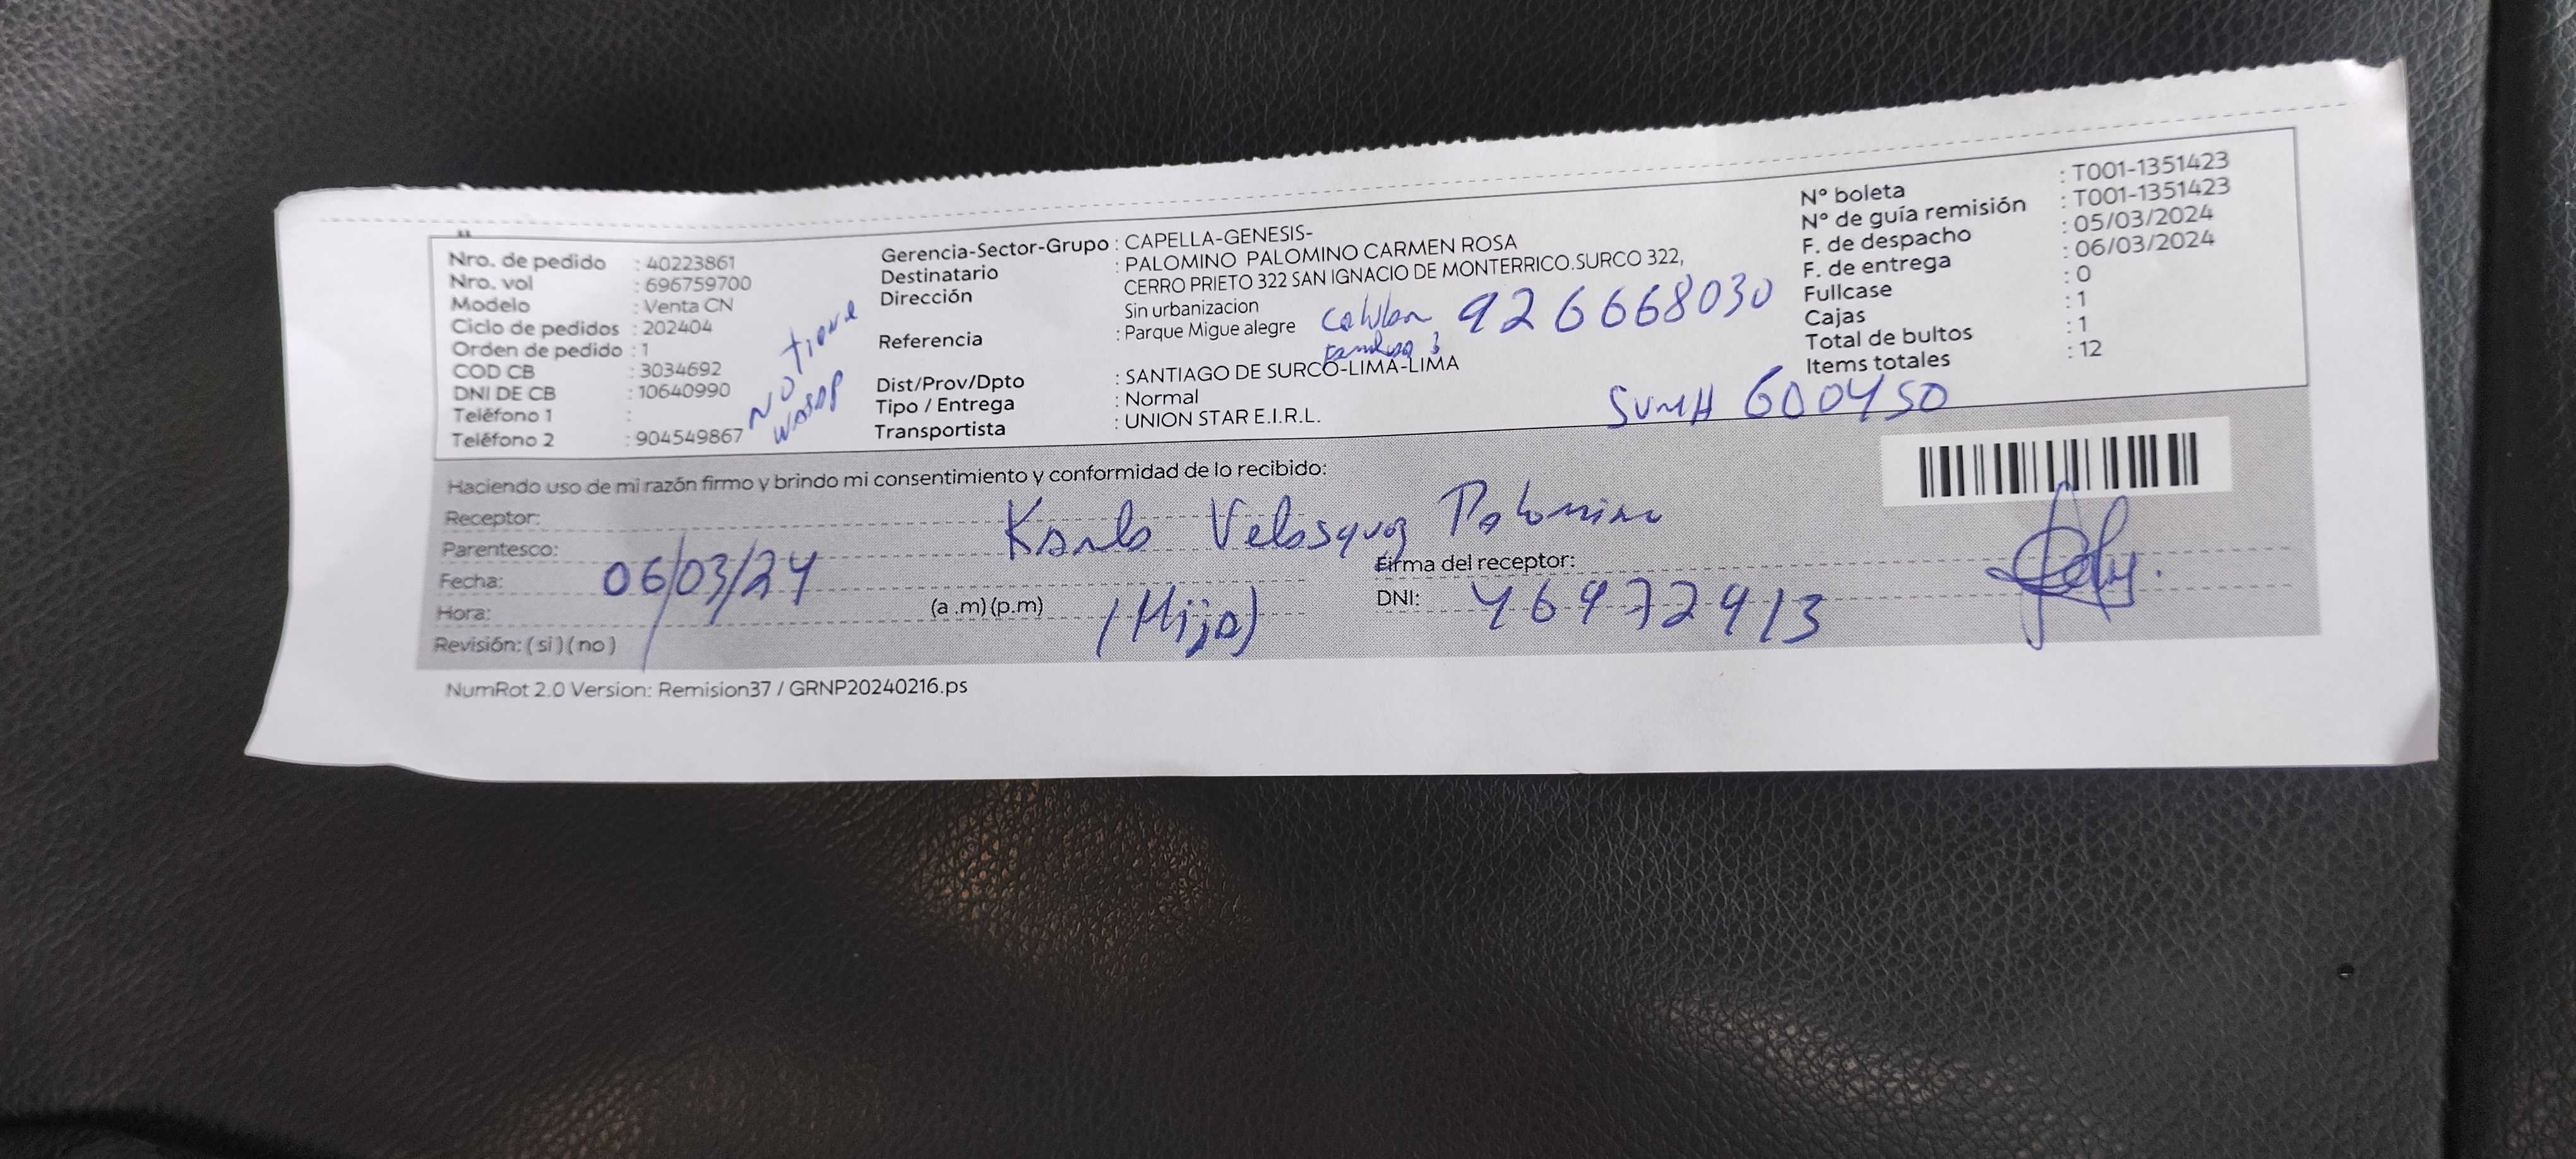 Nro. de pedido : 40223861
Nro. vol : 696759700
Modelo : Venta CN
Ciclo de pedidos : 202404
Orden de pedido : 1
COD CB : 3034692
DNI DE CB : 10640990
Teléfono 1 :
Teléfono 2 : 904549867
NO tiene
wasap
Gerencia-Sector-Grupo : CAPELLA-GENESIS-
Destinatario : PALOMINO PALOMINO CARMEN ROSA
Dirección CERRO PRIETO 322 SAN IGNACIO DE MONTERRICO.SURCO 322,
Sin urbanizacion
Referencia : Parque Migue alegre
Celular 926668030
Dist/Prov/Dpto : SANTIAGO DE SURCO-LIMA-LIMA
Tipo / Entrega : Normal
Transportista : UNION STAR E.I.R.L.
N° boleta : T001-1351423
N° de guía remisión : T001-1351423
F. de despacho : 05/03/2024
F. de entrega : 06/03/2024
Fullcase : 0
Cajas : 1
Total de bultos : 1
Items totales : 12
600450
Haciendo uso de mi razón firmo y brindo mi consentimiento y conformidad de lo recibido:
Receptor: Karla Velasquez Palomino
Parentesco:
Fecha: 06/03/24
Firma del receptor:
Hora: (a .m)(p.m) (Hija)
DNI: 46972913
Revisión: (si)(no)
NumRot 2.0 Version: Remision37 / GRNP20240216.ps